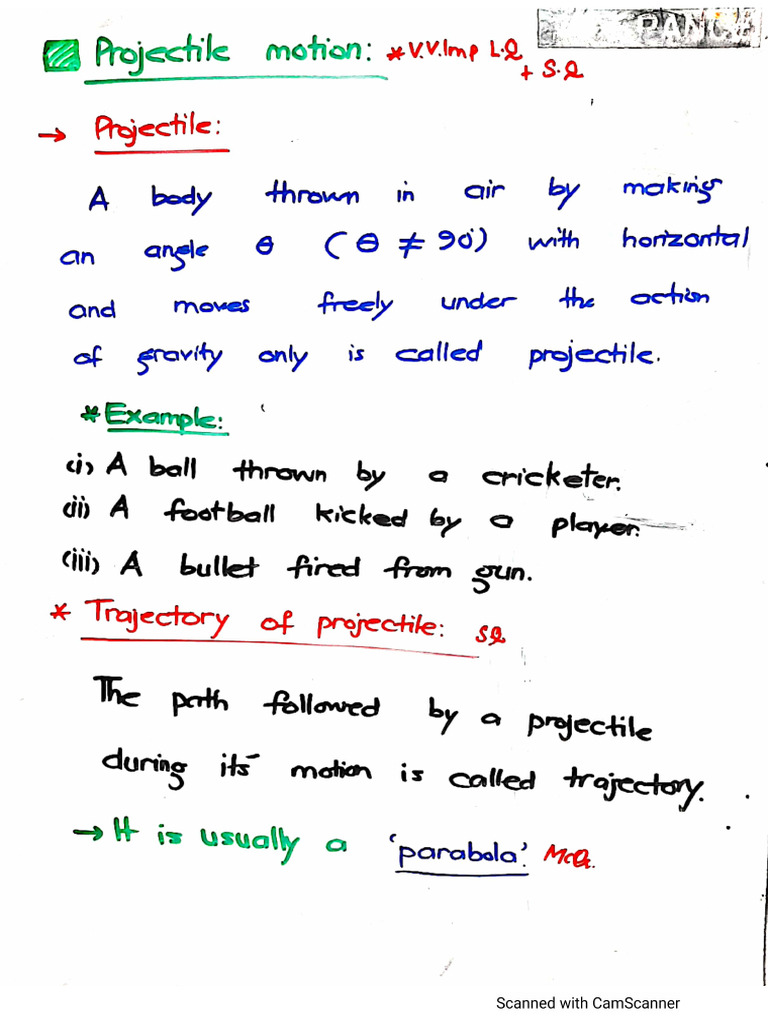 Projectile motion: *V.V.Imp L.Q
+ S.Q
PANCA
→ Projectile:
A body thrown in air by making
an angle θ (θ ≠ 90°) with horizontal
and moves freely under the action
of gravity only is called projectile.
*Example:
(i) A ball thrown by a cricketer.
(ii) A football kicked by a player.
(iii) A bullet fired from gun.
* Trajectory of projectile: SQ
The path followed by a projectile
during its motion is called trajectory.
→ It is usually a 'parabola'. McQ.
Scanned with CamScanner